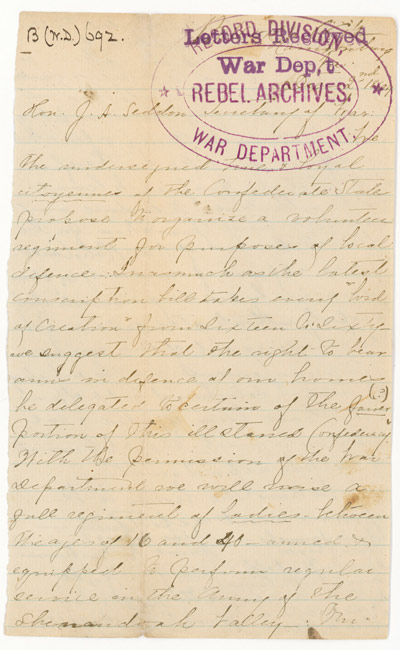 B (W.D.) 692.
Letters Received
RECORD DIVISION,
War Dep,t
REBEL ARCHIVES,
WAR DEPARTMENT,
Hon. J. A. Seddon Secretary of War.
The undersigned true & loyal
citoyennes of the Confederate States
propose to organize a volunteer
regiment for purposes of local
defence. Inasmuch as the latest
conscription bill takes every "lord
of Creation" from Sixteen to Sixty
we suggest that the right to bear
arms in defence of our homes
be delegated to certain of the fairer (?)
portion of this illstared Confederacy
With the permission of the War
Department we will raise a
full regiment of ladies between
the ages of 16 and 40 armed &
equipped to perform regular
service in the Army of the
Shenandoah Valley.